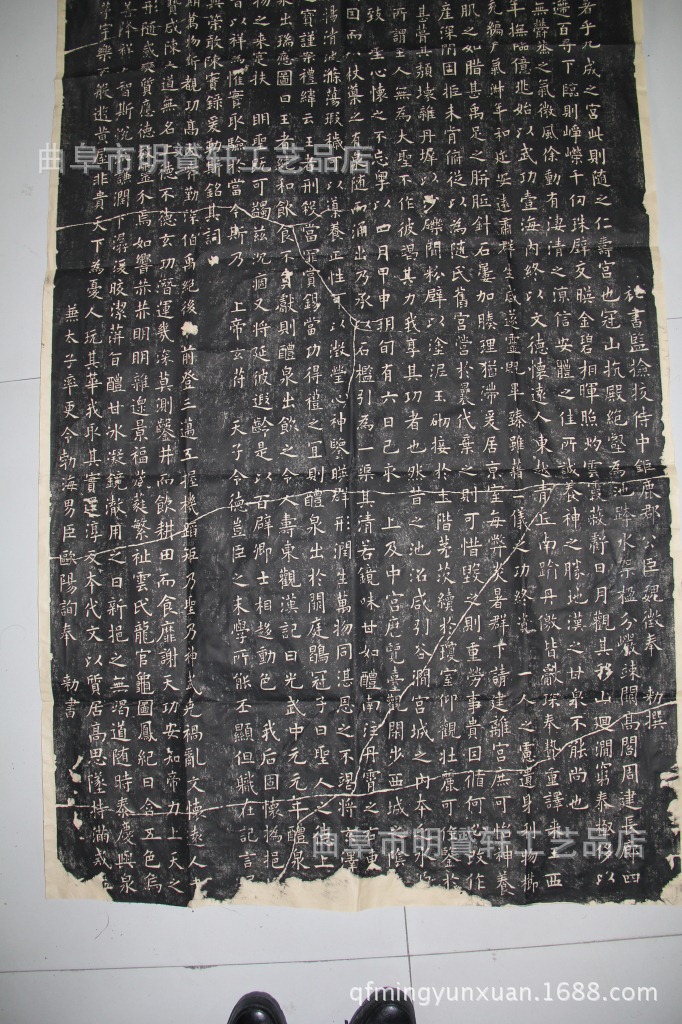 祕書監檢校侍中鉅鹿郡公臣魏徵奉 勅撰
乎九成之宮此則隨之仁壽宮也冠山抗殿絕壑為池跨水架楹分巖竦闕高閣周建長廊四
邐百尋下臨則崢嶸千仞珠璧交暎金碧相暉照灼雲霞蔽虧日月觀其移山迴澗窮泰極侈以
無欝蒸之氣微風徐動有淒清之涼信安體之佳所誠養神之勝地漢之甘泉不能尚也
年撫臨億兆始以武功壹海內終以文德懷遠人東越青丘南踰丹徼皆獻琛奉贄重譯來王西
編戶氣淑年和迩安遠肅群生咸遂靈貺畢臻雖藉二儀之功終資一人之慮遺身利物櫛
肌之如腊甚禹足之胼胝針石屢加腠理猶滯爰居京室每弊炎暑群下請建離宮庶可怡神養
產深閉固拒未肯俯從以為隨氏舊宮營於曩代棄之則可惜毀之則重勞事貴因循何必改作
葺其頹壞雜丹墀以沙礫間粉壁以塗泥玉砌接於土階茅茨續於瓊室仰觀壯麗可作鑒於
所謂至人無為大聖不作彼竭其力我享其功者也然昔之池沼咸引谷澗宮城之內本乏水源
致 聖心懷之不忘粤以四月甲申朔旬有六日己亥 上及中宮歷覽臺觀閑步西城之陰
因而以杖導之有泉隨而涌出乃承以石檻引為一渠其清若鏡味甘如醴南注丹霄之右東
蕩清波滌蕩瑕穢可以導養正性可以澂瑩心神鑒暎群形潤生萬物同湛恩之不竭將玄澤
之寶謹案禮緯云王者刑殺當罪賞錫當功得禮之宜則醴泉出於闕庭鶡冠子曰聖人之德上
泉出瑞應圖曰王者純和飲食不貢獻則醴泉出飲之令人壽東觀漢記曰光武中元元年醴泉
物之來寔扶 明聖既可蠲茲沉痼又將延彼遐齡是以百辟卿士相趨動色 我后固懷撝挹
昔以祥為懼實取驗於當今斯乃 上帝玄符 天子令德豈臣之末學所能丕顯但職在記言
典策敢陳實錄爰勒斯銘其詞曰
類萬物斯覩功高大舜勤深伯禹絕後承前登三邁五握機蹈矩乃聖乃神武克禍亂文懷遠人
贊咸陳大道無名上德不德玄功潛運幾深莫測鑿井而飲耕田而食靡謝天功安知帝力上天之
形隨感變質應德效靈介焉如響赫赫明明雜遝景福葳蕤繁祉雲氏龍官龜圖鳳紀日含五色烏
善降祥上智斯悅流謙潤下潺湲皎潔蓱旨醴甘冰凝鏡澈用之日新挹之無竭道隨時泰慶與泉
宇樂不般遊黃屋非貴天下為憂人玩其華我取其實還淳反本代文以質居高思墜持滿戒溢
兼太子率更令勃海男臣歐陽詢奉 勅書
曲阜市明賫轩工艺品店
曲阜市明賫轩工艺品店
qfmingyunxuan.1688.com